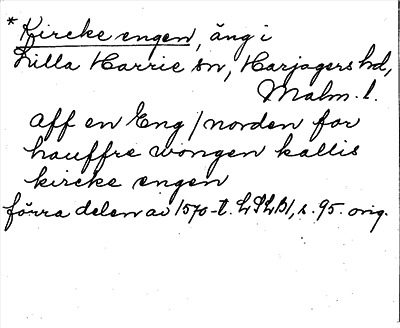 * Kircke engen, äng i
Lilla Harrie sn, Harjagers hd,
Malm. l.
aff en Eng / norden for
hauffre wongen kallis
kircke engen
förra delen av 1570-t. LSLB1, s. 95. orig.